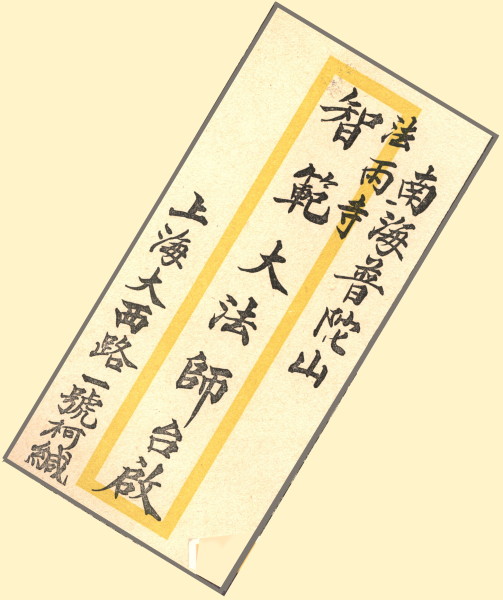 南海普陀山
法雨寺
智範大法師台啟
上海大西路一號柯緘